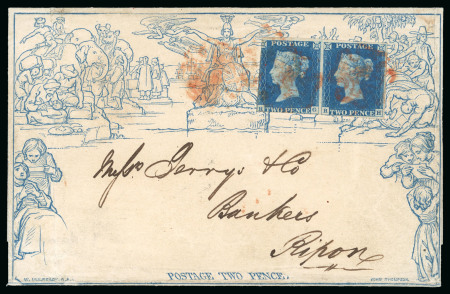 POSTAGE POSTAGE
TWO PENCE TWO PENCE
Messrs Terrys & Co
Bankers
Ripon
POSTAGE TWO PENCE.
W. MULREADY, R.A. JOHN THOMPSON